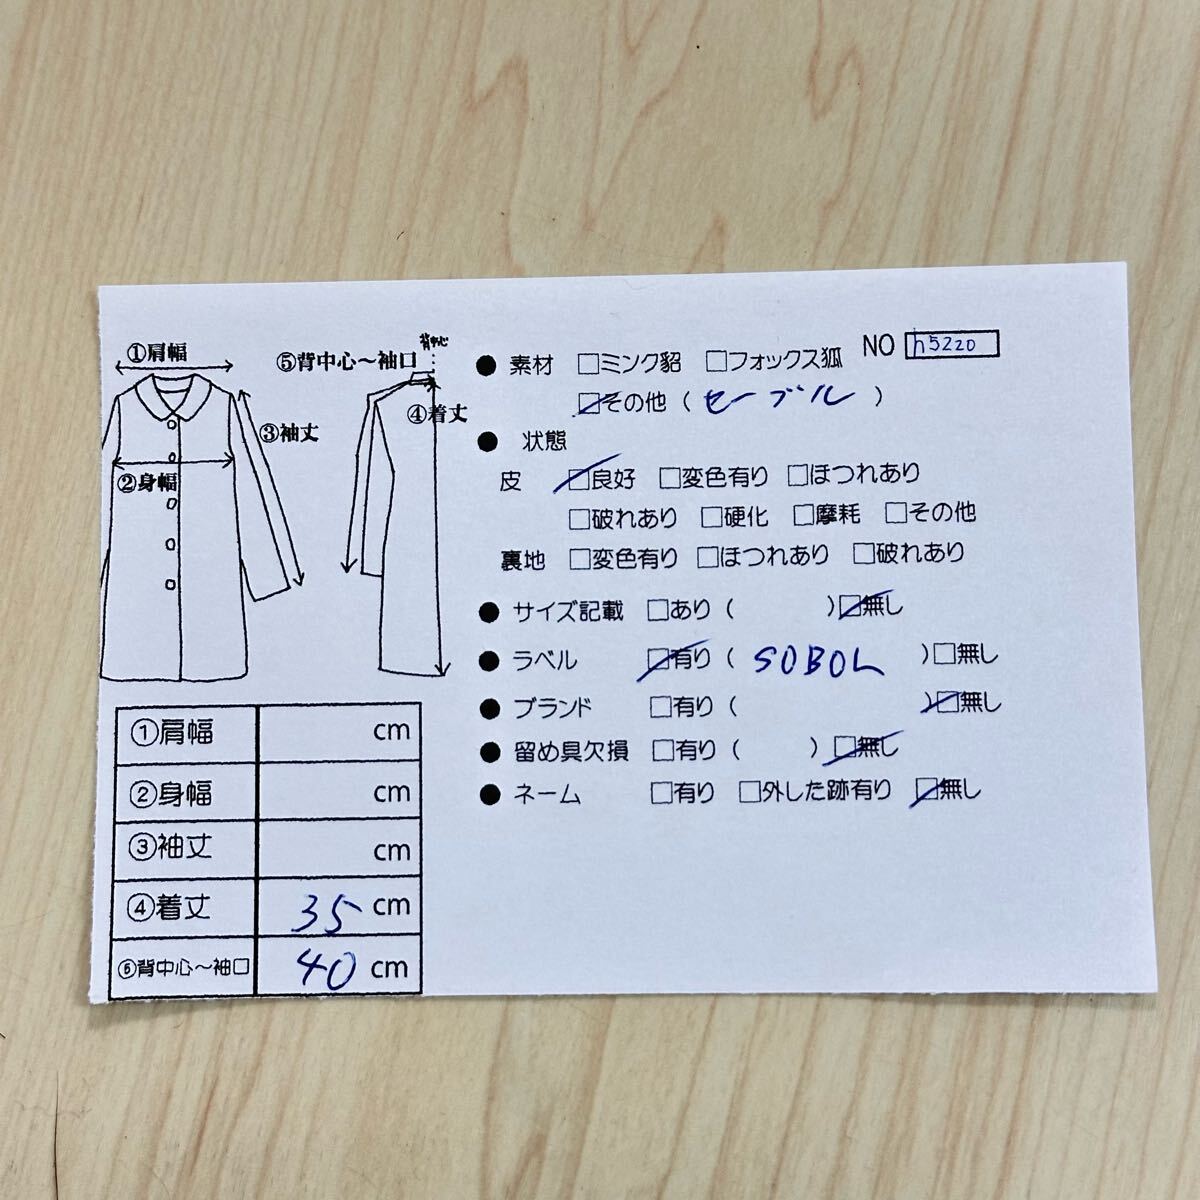 ①肩幅
⑤背中心～袖口
背中心
④着丈
③袖丈
②身幅
①肩幅 cm
②身幅 cm
③袖丈 cm
④着丈 35 cm
⑤背中心～袖口 40 cm
NO h5220
● 素材 □ミンク貂 □フォックス狐
☑その他 ( セーブル )
● 状態
皮 ☑良好 □変色有り □ほつれあり
□破れあり □硬化 □摩耗 □その他
裏地 □変色有り □ほつれあり □破れあり
● サイズ記載 □あり ( ) ☑無し
● ラベル ☑有り ( SOBOL ) □無し
● ブランド □有り ( ) ☑無し
● 留め具欠損 □有り ( ) ☑無し
● ネーム □有り □外した跡有り ☑無し